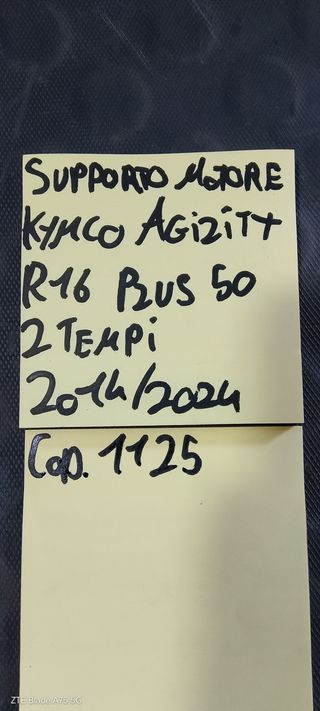 SUPPORTO MOTORE
KYMCO AGiliTY
R16 PLUS 50
2 TEMPi
2014/2024
Cod. 1125
ZTE Blade A75 5G